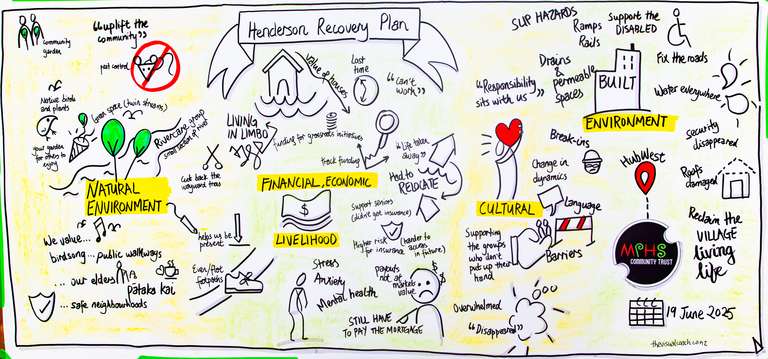 Henderson Recovery Plan
"uplift the
community"
community
garden
pest control
Native birds
and plants
Green space (twin streams)
your garden
for others to
enjoy
Rivercare group
Cut back the
wayward trees
NATURAL
ENVIRONMENT
We value...
birdsong... public walkways
... our elders
pātaka kai
... safe neighbourhoods
helps us be
present
Even/flat
footpaths
Value of houses
Lost
time
"Can't
work"
LIVING
IN LIMBO
funding for grassroots initiatives
track funding
"life taken
away"
Had to
RELOCATE
FINANCIAL, ECONOMIC
$
LIVELIHOOD
Support seniors
(didn't get insurance)
Higher risk
for insurance
(harder to
access
in future)
Stress
Anxiety
Mental health
payouts
not at
market
value
STILL HAVE
TO PAY THE MORTGAGE
"Responsibility
sits with us"
CULTURAL
Break-ins
Change in
dynamics
Language
Barriers
Supporting
the groups
who don't
put up their
hand
Overwhelmed
"Disappeared"
SLIP HAZARDS
Ramps
Rails
Drains &
permeable
spaces
Support the
DISABLED
Fix the roads
Water everywhere
BUILT
ENVIRONMENT
security
disappeared
Roofs
damaged
HubWest
MPHS
COMMUNITY TRUST
Reclaim the
VILLAGE
living
life
19 June 2025
thevisualcoach.co.nz